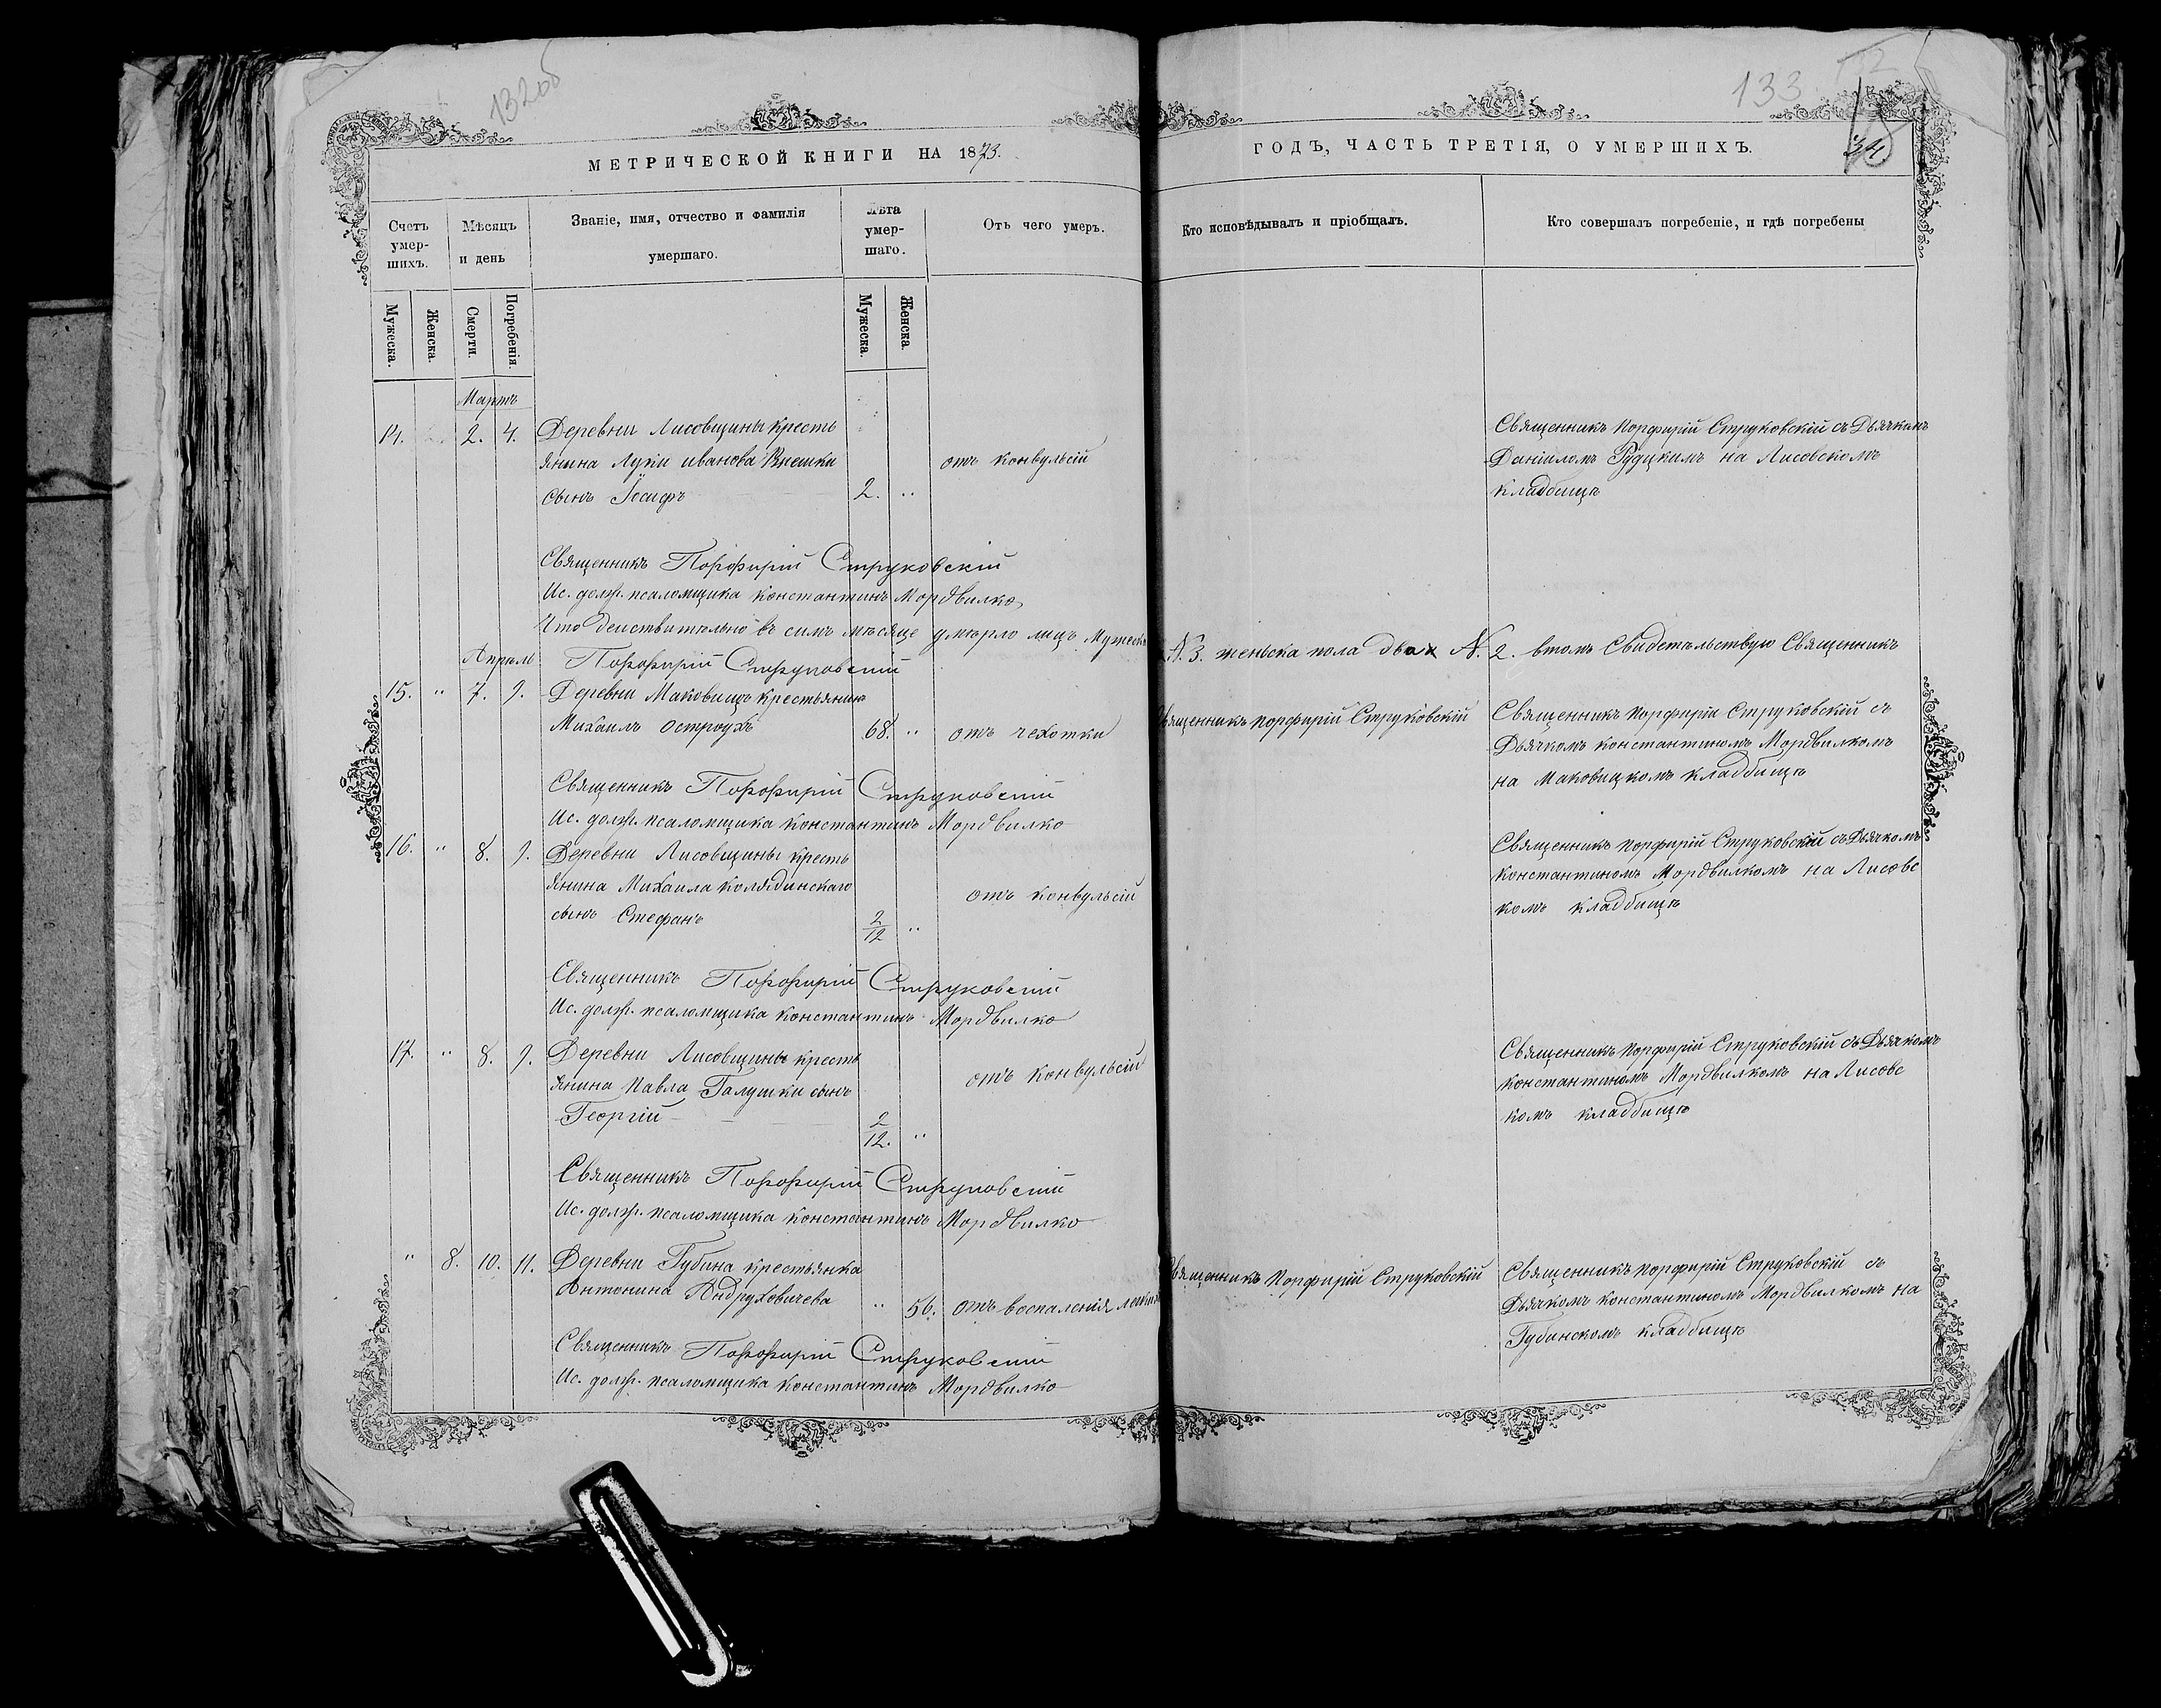 132об
133
34
МЕТРИЧЕСКОЙ КНИГИ НА 1873.
ГОДЪ, ЧАСТЬ ТРЕТІЯ, О УМЕРШИХЪ.
Счетъ умер-шихъ.
Мѣсяцъ и день
Званіе, имя, отчество и фамилія умершаго.
Лѣта умер-шаго.
Отъ чего умеръ.
Кто исповѣдывалъ и пріобщалъ.
Кто совершалъ погребеніе, и гдѣ погребены
Мужеска.
Женска.
Смерти.
Погребенія.
Мужеска.
Женска.
Мартъ
14. 2. 4. Деревни Лисовщины кресть
янина Луки Иванова
сынъ Іосифъ 2. "
отъ конвульсій
Священникъ Порфирій Струковскій съ Дьячкомъ
Даніиломъ Рудцкимъ на Лисовскомъ
кладбищѣ
Священникъ Порфирій Струковскій
Ис. долж. псаломщика Константинъ Мордвилко
Что действительно въ симъ мѣсяце умерло лицъ Мужеска N. 3. женьска пола двах N. 2. втомъ Свидетельствую Священникъ
Порфирій Струковскій
Апрель
15. " 7. 9. Деревни Маковищъ крестьянинъ
Михаилъ Остроухъ 68. " отъ чехотки
Священникъ Порфирій Струковскій
Священникъ Порфирій Струковскій съ
Дьячкомъ Константиномъ Мордвилкомъ
на Маковицкомъ кладбищѣ
Священникъ Порфирій Струковскій
Ис. долж. псаломщика Константинъ Мордвилко
16. " 8. 9. Деревни Лисовщины кресть
янина Михаила Колядинскаго
сынъ Стефанъ 2/12 "
отъ конвульсій
Священникъ Порфирій Струковскій съ Дьячкомъ
Константиномъ Мордвилкомъ на Лисовс
комъ кладбищѣ
Священникъ Порфирій Струковскій
Ис. долж. псаломщика Константинъ Мордвилко
17. " 8. 9. Деревни Лисовщины кресть
янина Павла Галушки сынъ
Георгій 2/12. "
отъ конвульсій
Священникъ Порфирій Струковскій съ Дьячкомъ
Константиномъ Мордвилкомъ на Лисовс
комъ кладбищѣ
Священникъ Порфирій Струковскій
Ис. долж. псаломщика Константинъ Мордвилко
" 8. 10. 11. Деревни Губина крестьянка
Антонина Андруховичева " 56. отъ воспаленія
Священникъ Порфирій Струковскій
Священникъ Порфирій Струковскій съ
Дьячкомъ Константиномъ Мордвилкомъ на
Губинскомъ кладбищѣ
Священникъ Порфирій Струковскій
Ис. долж. псаломщика Константинъ Мордвилко